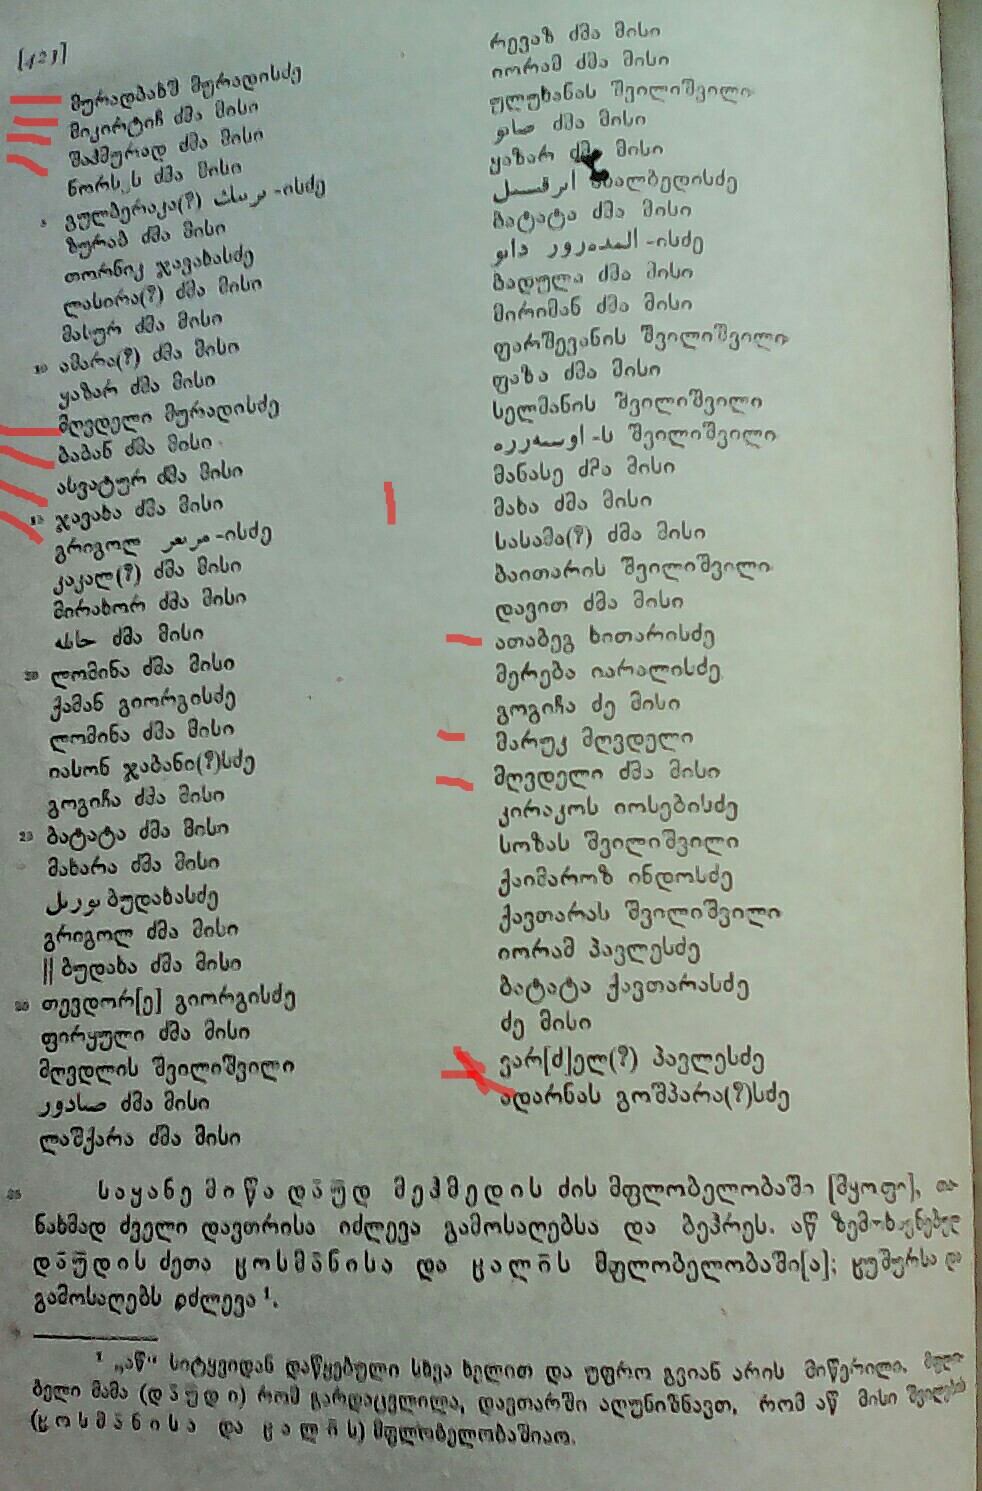 [423]
მურადბახშ მურადისძე
მიკირტიჩ ძმა მისი
შაჰმურად ძმა მისი
ნორსეს ძმა მისი
5 გულბერაკა(?) -ისძე
ზურაბ ძმა მისი
თორნიკ ჯავახასძე
ლასირა(?) ძმა მისი
მასურ ძმა მისი
10 ამარა(?) ძმა მისი
ყაზარ ძმა მისი
მღვდელი მურადისძე
ბაბან ძმა მისი
ასვატურ ძმა მისი
15 ჯავახა ძმა მისი
გრიგოლ -ისძე
კაკალ(?) ძმა მისი
მირახორ ძმა მისი
ძმა მისი
20 ლომინა ძმა მისი
ქამან გიორგისძე
ლომინა ძმა მისი
იასონ ჯაბანი(?)სძე
გოგიჩა ძმა მისი
25 ბატატა ძმა მისი
მახარა ძმა მისი
ბუდახასძე
გრიგოლ ძმა მისი
|| ბუდახა ძმა მისი
30 თევდორ[ე] გიორგისძე
ფირყული ძმა მისი
მღვდლის შვილიშვილი
صادور ძმა მისი
ლაშქარა ძმა მისი
რევაზ ძმა მისი
იორამ ძმა მისი
ულუხანას შვილიშვილი
صانو ძმა მისი
ყაზარ ძმა მისი
აბალბედისძე
ბატატა ძმა მისი
-ისძე
ბადულა ძმა მისი
მირიმან ძმა მისი
ფარშევანის შვილიშვილი
ფაზა ძმა მისი
სელმანის შვილიშვილი
-ს შვილიშვილი
მანასე ძმა მისი
მახა ძმა მისი
სასამა(?) ძმა მისი
ბაითარის შვილიშვილი
დავით ძმა მისი
ათაბეგ ხითარისძე
მერება იარალისძე
გოგიჩა ძე მისი
მარუკ მღვდელი
მღვდელი ძმა მისი
კირაკოს იოსებისძე
სოზას შვილიშვილი
ქაიმაროზ ინდოსძე
ქავთარას შვილიშვილი
იორამ პავლესძე
ბატატა ქავთარასძე
ძე მისი
ვარ[ძ]ელ(?) პავლესძე
ადარნას გოშპარა(?)სძე
35 საყანე მიწა დāუ̄დ მეჰმედის ძის მფლობელობაში [მყოფი], თა-
ნახმად ძველი დავთრისა იძლევა გამოსაღებსა და ბეჰრეს. აწ ზემოხსენებულ
დāუ̄დის ძეთა ჲოსმāნისა და ჲალი̄ს მფლობელობაში[ა]; ჲუშურსა და
გამოსაღებს იძლევა¹.
¹ „აწ“ სიტყვიდან დაწყებული სხვა ხელით და უფრო გვიან არის მიწერილი. მფლო-
ბელი მამა (დāუ̄დი) რომ გარდაცვლილა, დავთარში აღუნიშნავთ, რომ აწ მისი შვილების
(ჲოსმāნისა და ჲალი̄ს) მფლობელობაშიაო.